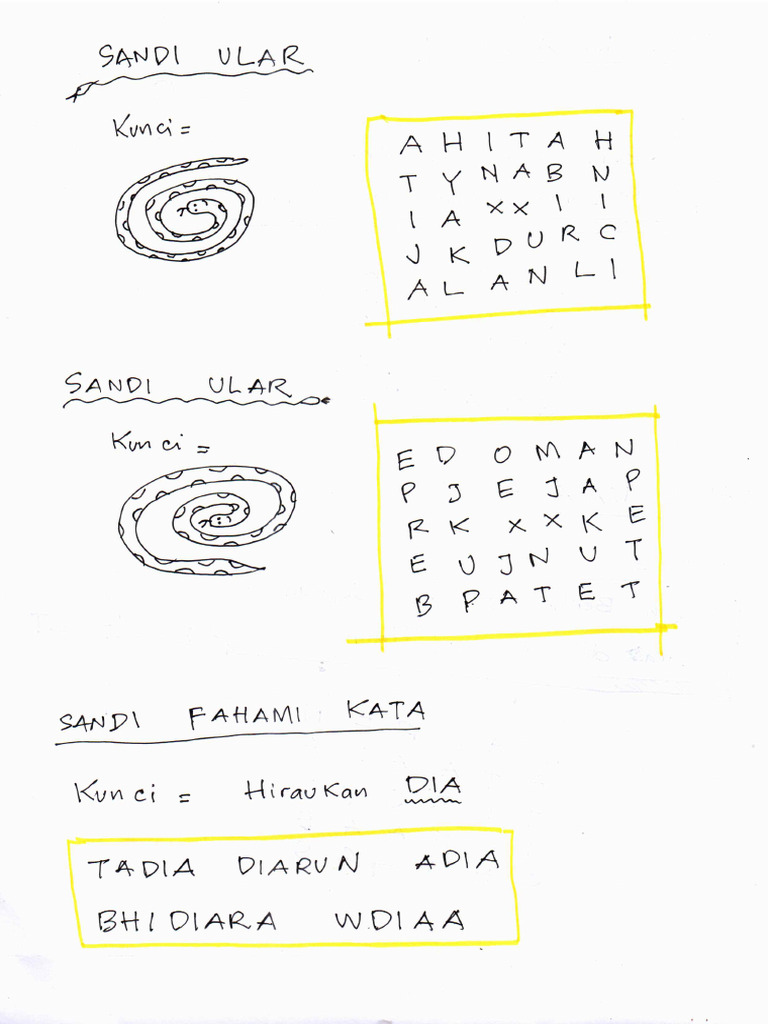 SANDI ULAR
Kunci =
A H I T A H
T Y N A B N
I A X X I I
J K D U R C
A L A N L I
SANDI ULAR
Kunci =
E D O M A N
P J E J A P
R K X X K E
E U J N U T
B P A T E T
SANDI FAHAMI KATA
Kunci = Hiraukan DIA
TADIA DIARUN ADIA
BHIDIARA WDIAA